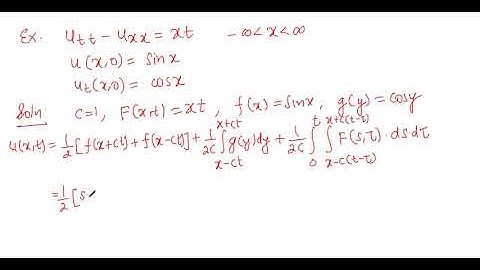 Ex. u_tt - u_xx = xt   -∞<x<∞
u(x,0) = sinx
u_t(x,0) = cosx
Soln: c=1, F(x,t)=xt, f(x)=sinx, g(y)=cosy
u(x,t)= 1/2 [f(x+ct) + f(x-ct)] + 1/2c ∫_{x-ct}^{x+ct} g(y)dy + 1/2c ∫_0^t ∫_{x-c(t-τ)}^{x+c(t-τ)} F(s,τ)·ds dτ
= 1/2 [s